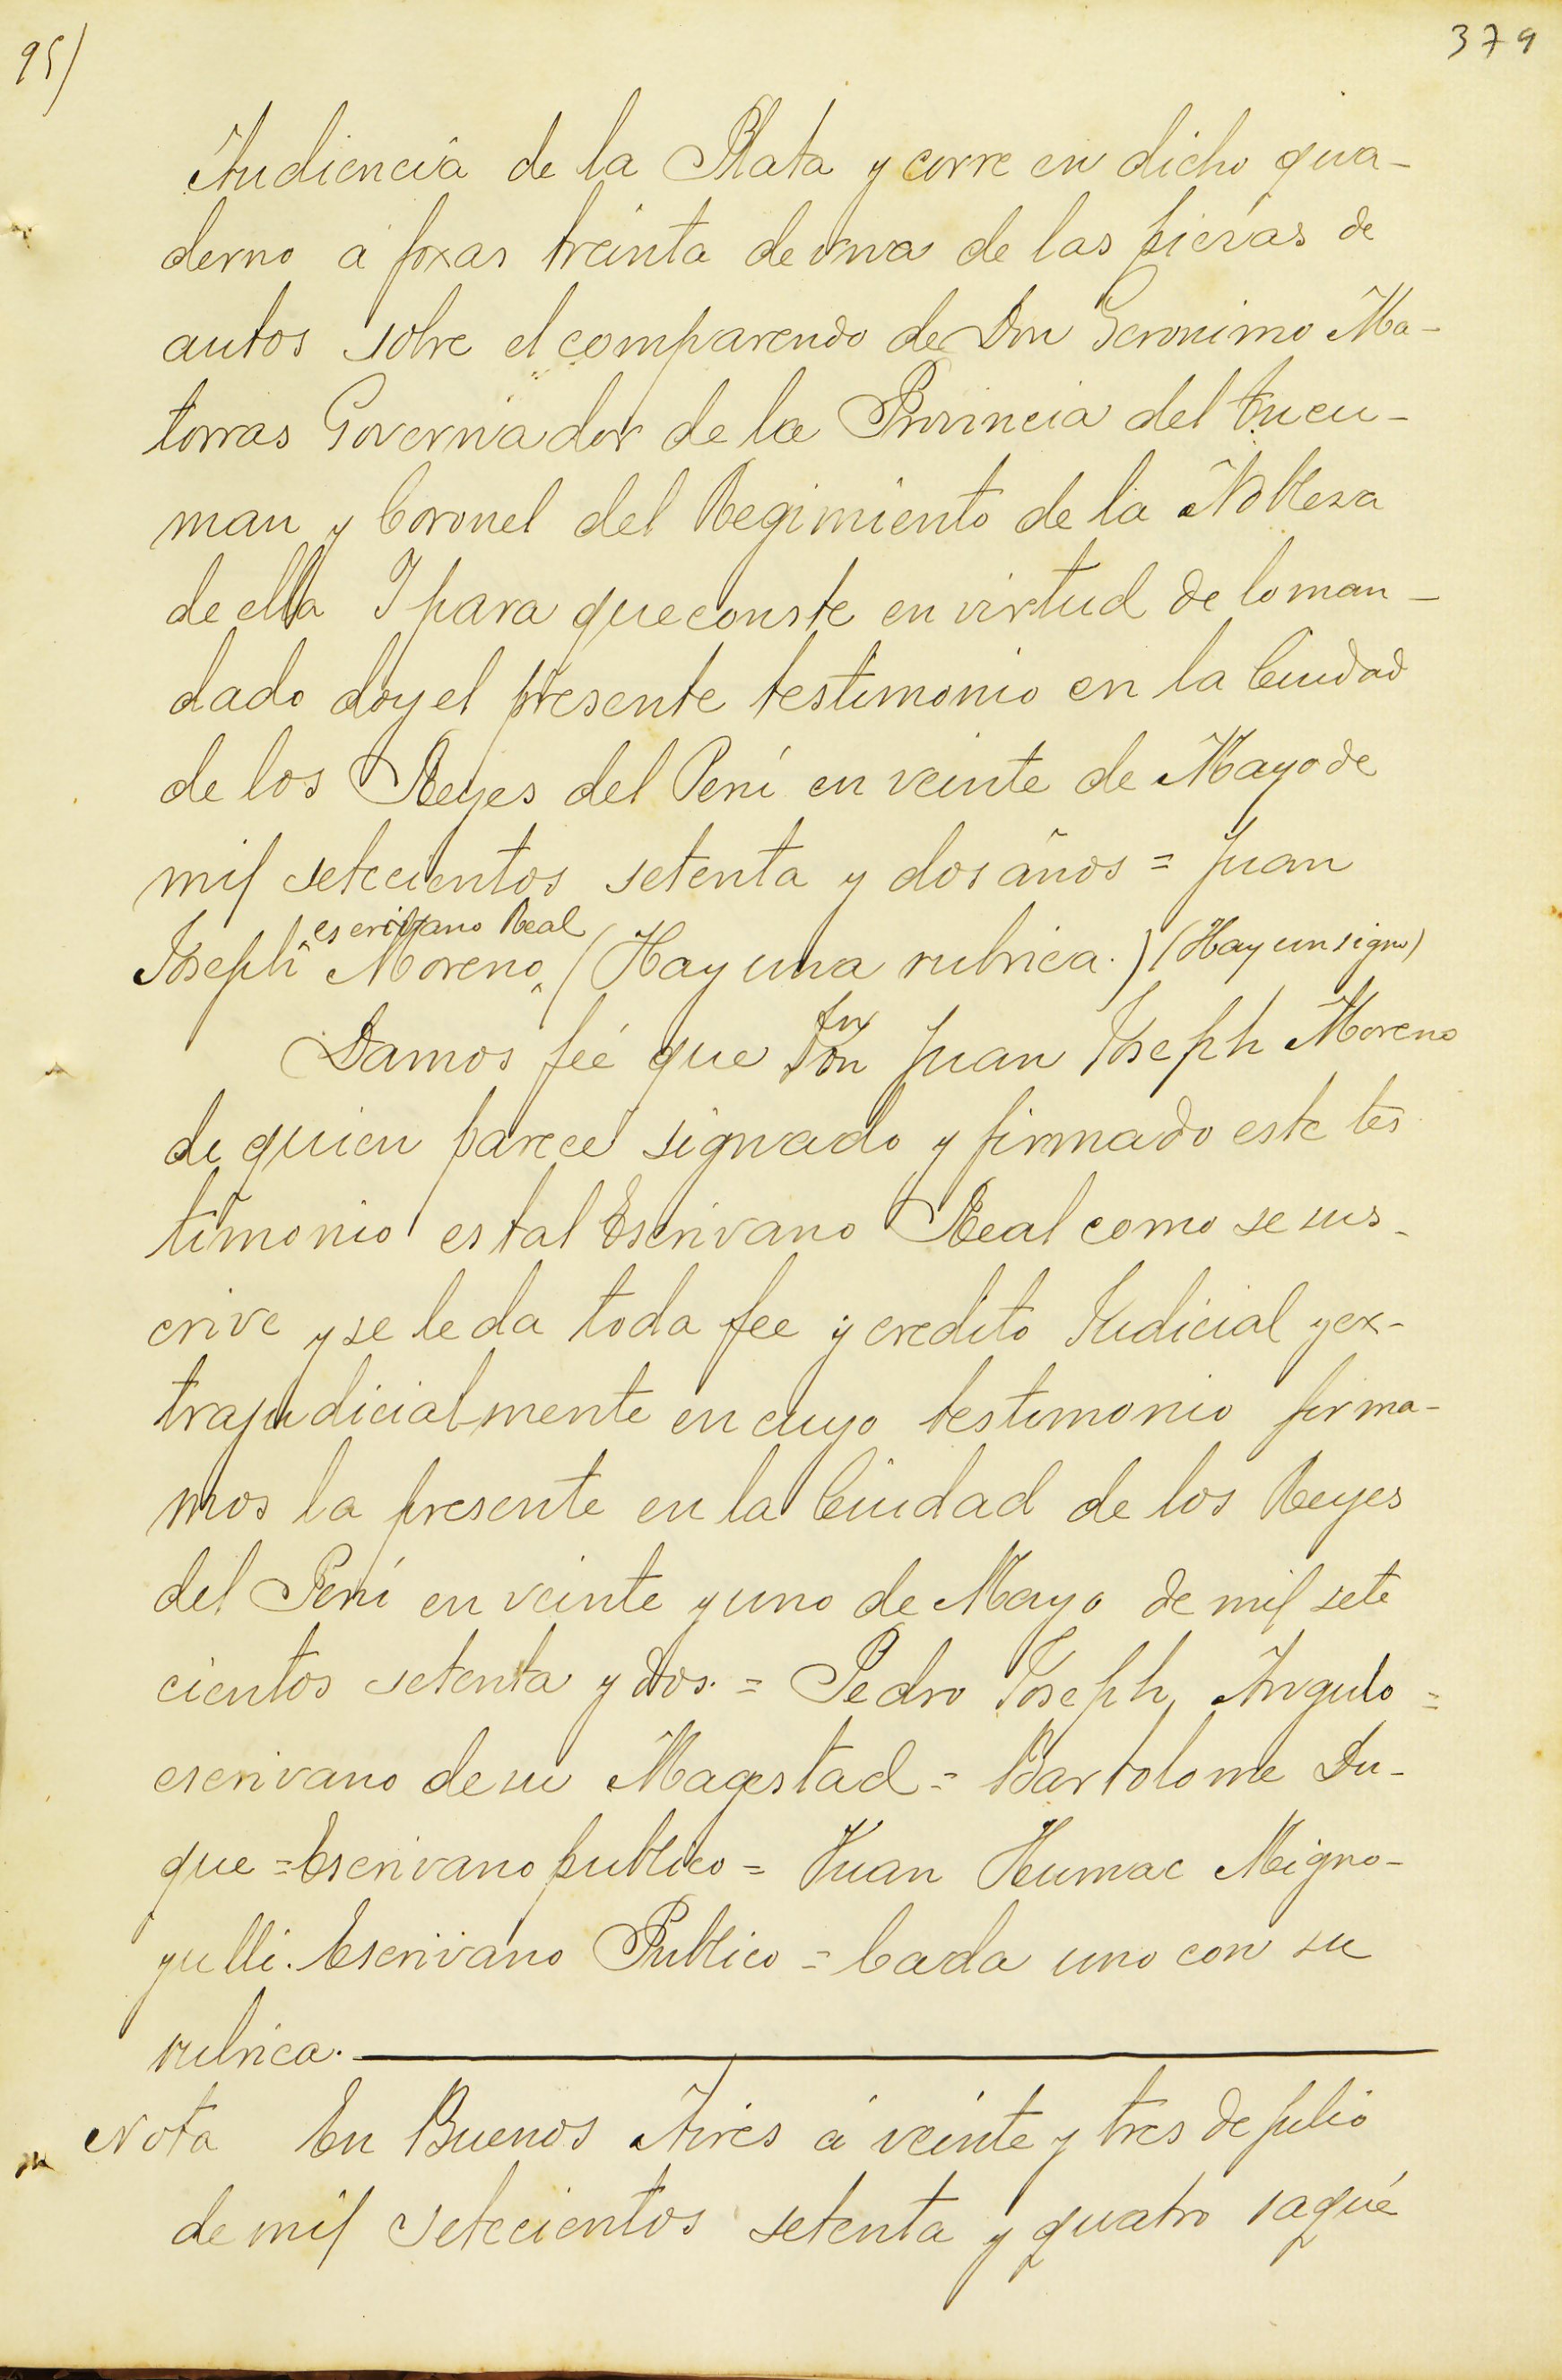 95/
379
Audiencia de la Plata y corre en dicho qua-
derno a foxas treinta de una de las piezas de
autos sobre el comparendo de Don Geronimo Ma-
torras Governador de la Provincia del Tucu-
man y Coronel del Regimiento de la Nobleza
de ella Y para que conste en virtud de lo man-
dado doy el presente testimonio en la Ciudad
de los Reyes del Perú en veinte de Mayo de
mil setecientos setenta y dos años = Juan
escrivano Real
Joseph Moreno, (Hay una rubrica.) (Hay un signo)
Damos fée que Don Juan Joseph Moreno
de quien parece signado y firmado este tes
timonio es tal Escrivano Real como se sus-
crive y se le da toda fee y credito Judicial y ex-
trajudicialmente en cuyo testimonio firma-
mos la presente en la Ciudad de los Reyes
del Perú en veinte y uno de Mayo de mil sete
cientos setenta y dos. = Pedro Joseph Angulo =
escrivano de su Magestad = Bartolome Du-
que = Escrivano publico = Juan Humac Migno-
yulli. Escrivano Publico = Cada uno con su
rubrica.
Nota En Buenos Aires a veinte y tres de julio
de mil setecientos setenta y quatro saqué